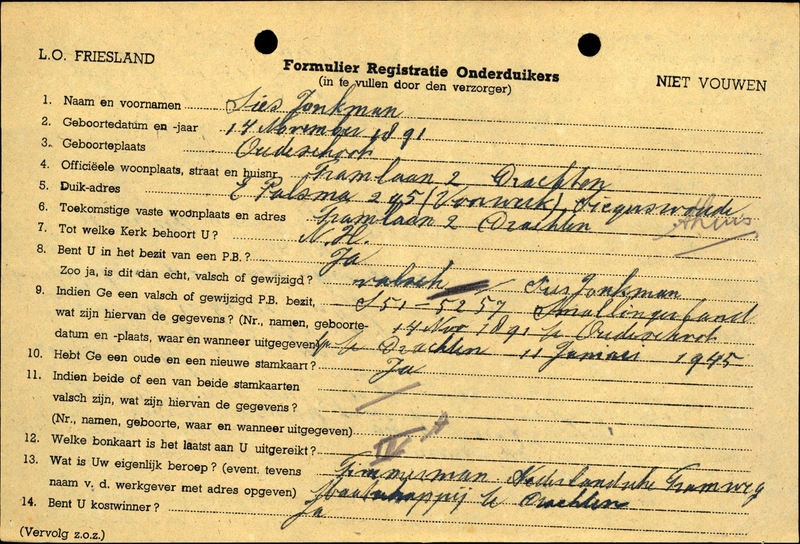 L.O. FRIESLAND
Formulier Registratie Onderduikers
(in te vullen door den verzorger)
NIET VOUWEN
1. Naam en voornamen Sies Jonkman
2. Geboortedatum en -jaar 14 November 1891
3. Geboorteplaats Oudeschoot
4. Officiëele woonplaats, straat en huisnr. Tramlaan 2 Drachten
5. Duik-adres E Palsma 245 (Voorwerk) Siegerswoude
6. Toekomstige vaste woonplaats en adres Tramlaan 2 Drachten
7. Tot welke Kerk behoort U? N.H.
8. Bent U in het bezit van een P.B.? Ja
Zoo ja, is dit dan echt, valsch of gewijzigd? valsch Sies Jonkman
9. Indien Ge een valsch of gewijzigd P.B. bezit, S51-5257 Smallingerland
wat zijn hiervan de gegevens? (Nr., namen, geboorte- 14 Nov 1891 te Oudeschoot
datum en -plaats, waar en wanneer uitgegeven) te Drachten 11 Januari 1945
10. Hebt Ge een oude en een nieuwe stamkaart? Ja
11. Indien beide of een van beide stamkaarten
valsch zijn, wat zijn hiervan de gegevens?
(Nr., namen, geboorte, waar en wanneer uitgegeven)
12. Welke bonkaart is het laatst aan U uitgereikt? IV A
13. Wat is Uw eigenlijk beroep? (event. tevens Timmerman Nederlandsche Tramweg
naam v. d. werkgever met adres opgeven) Maatschappij te Drachten
14. Bent U kostwinner? Ja
(Vervolg z.o.z.)